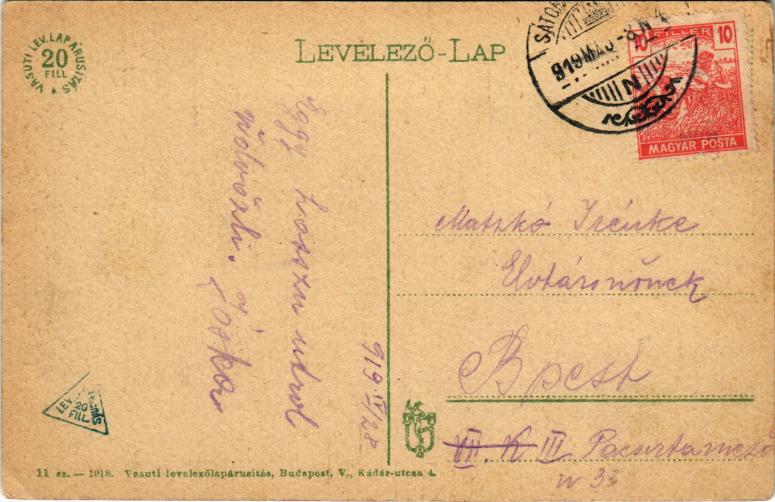 VASUTI LEV.LAPÁRUSITÁS
20
FILL
LEVELEZŐ-LAP
SÁTOR
919 MÁJ -8 N 4
10 FILLER 10
MAGYAR POSTA
Egy hosszu utrol
üdvözli.
Jóska
919 IV/28
Matzkó Irénke
Elvtársnőnek
Bpest
VII. K III.
LEV.
20
FILL.
11 sz. — 1918. Vasuti levelezőlapárusitás, Budapest, V., Kádár-utcza 4.